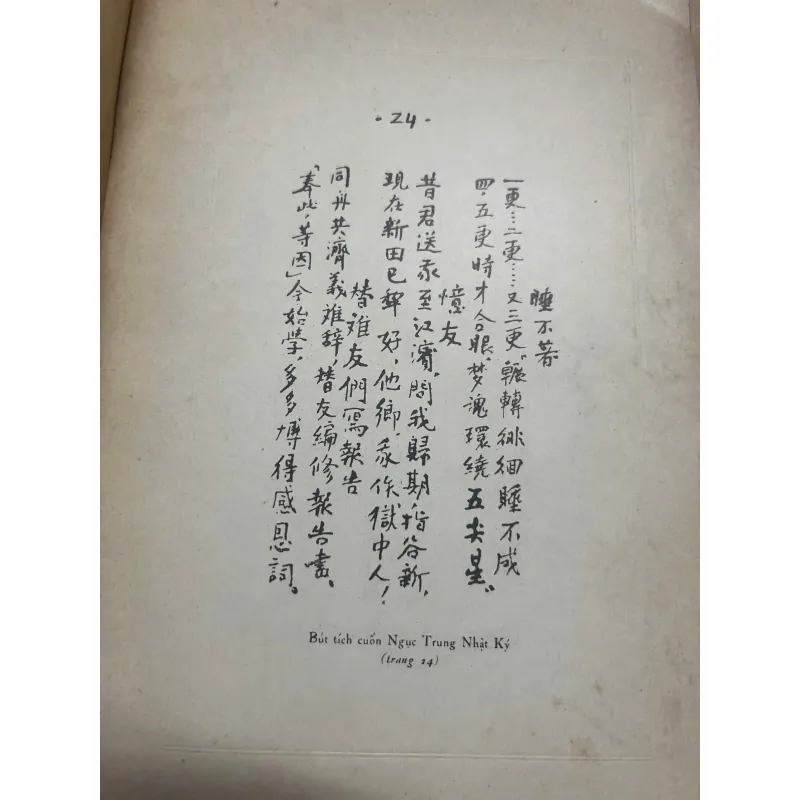 - 24 -
睡不着
一更…二更……又三更,輾轉徘徊睡不成
四、五更時才合眼,夢魂環繞五尖星。
憶友
昔君送我至江濱,問我歸期指谷新,
現在新田已犂好,他鄉我作獄中人!
替难友們寫報告
同舟共濟義难辞,替友編修報告書,
「奉此,等因」今始學,多多博得感恩詞。
Bút tích cuốn Ngục Trung Nhật Ký
(trang 24)